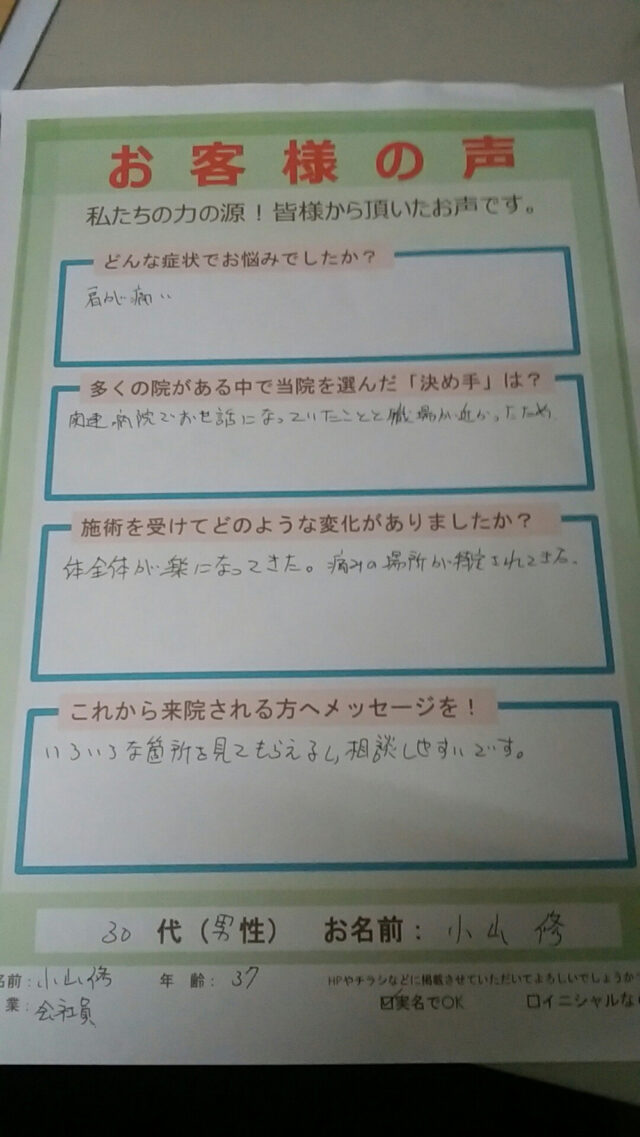 お客様の声
私たちの力の源！皆様から頂いたお声です。
どんな症状でお悩みでしたか？
肩が痛い
多くの院がある中で当院を選んだ「決め手」は？
関連病院でお世話になっていたことと職場が近かったため.
施術を受けてどのような変化がありましたか？
体全体が楽になってきた。痛みの場所が特定されてきた.
これから来院される方へメッセージを！
いろいろな箇所を見てもらえるし,相談しやすいです。
30 代（男性） お名前：小山 修
名前：小山修 年 齢：37 HPやチラシなどに掲載させていただいてよろしいでしょうか
業：会社員 ☑実名でOK □イニシャルな